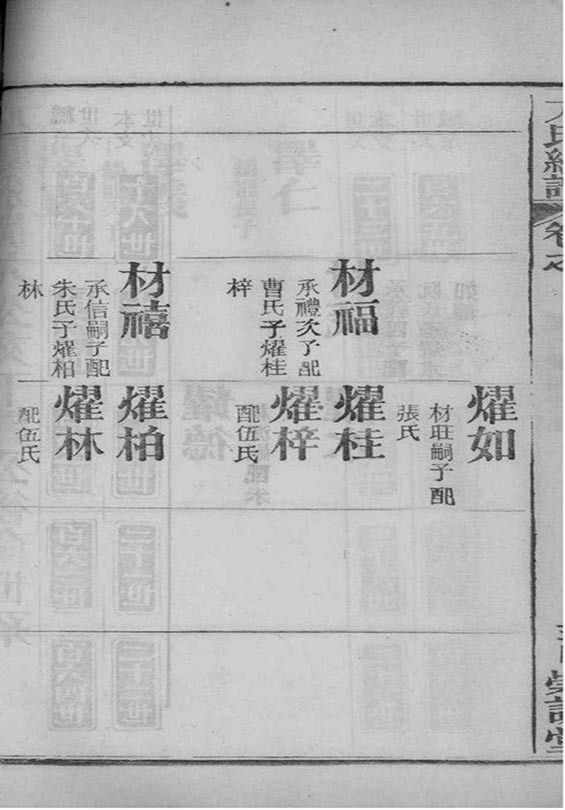 氏統譜
卷七
崇譜堂
燿如
材旺嗣子配
張氏
材福
承禮次子配
曹氏子燿桂
梓
燿桂
燿梓
配伍氏
材禧
承信嗣子配
朱氏子燿柏
林
燿柏
燿林
配伍氏